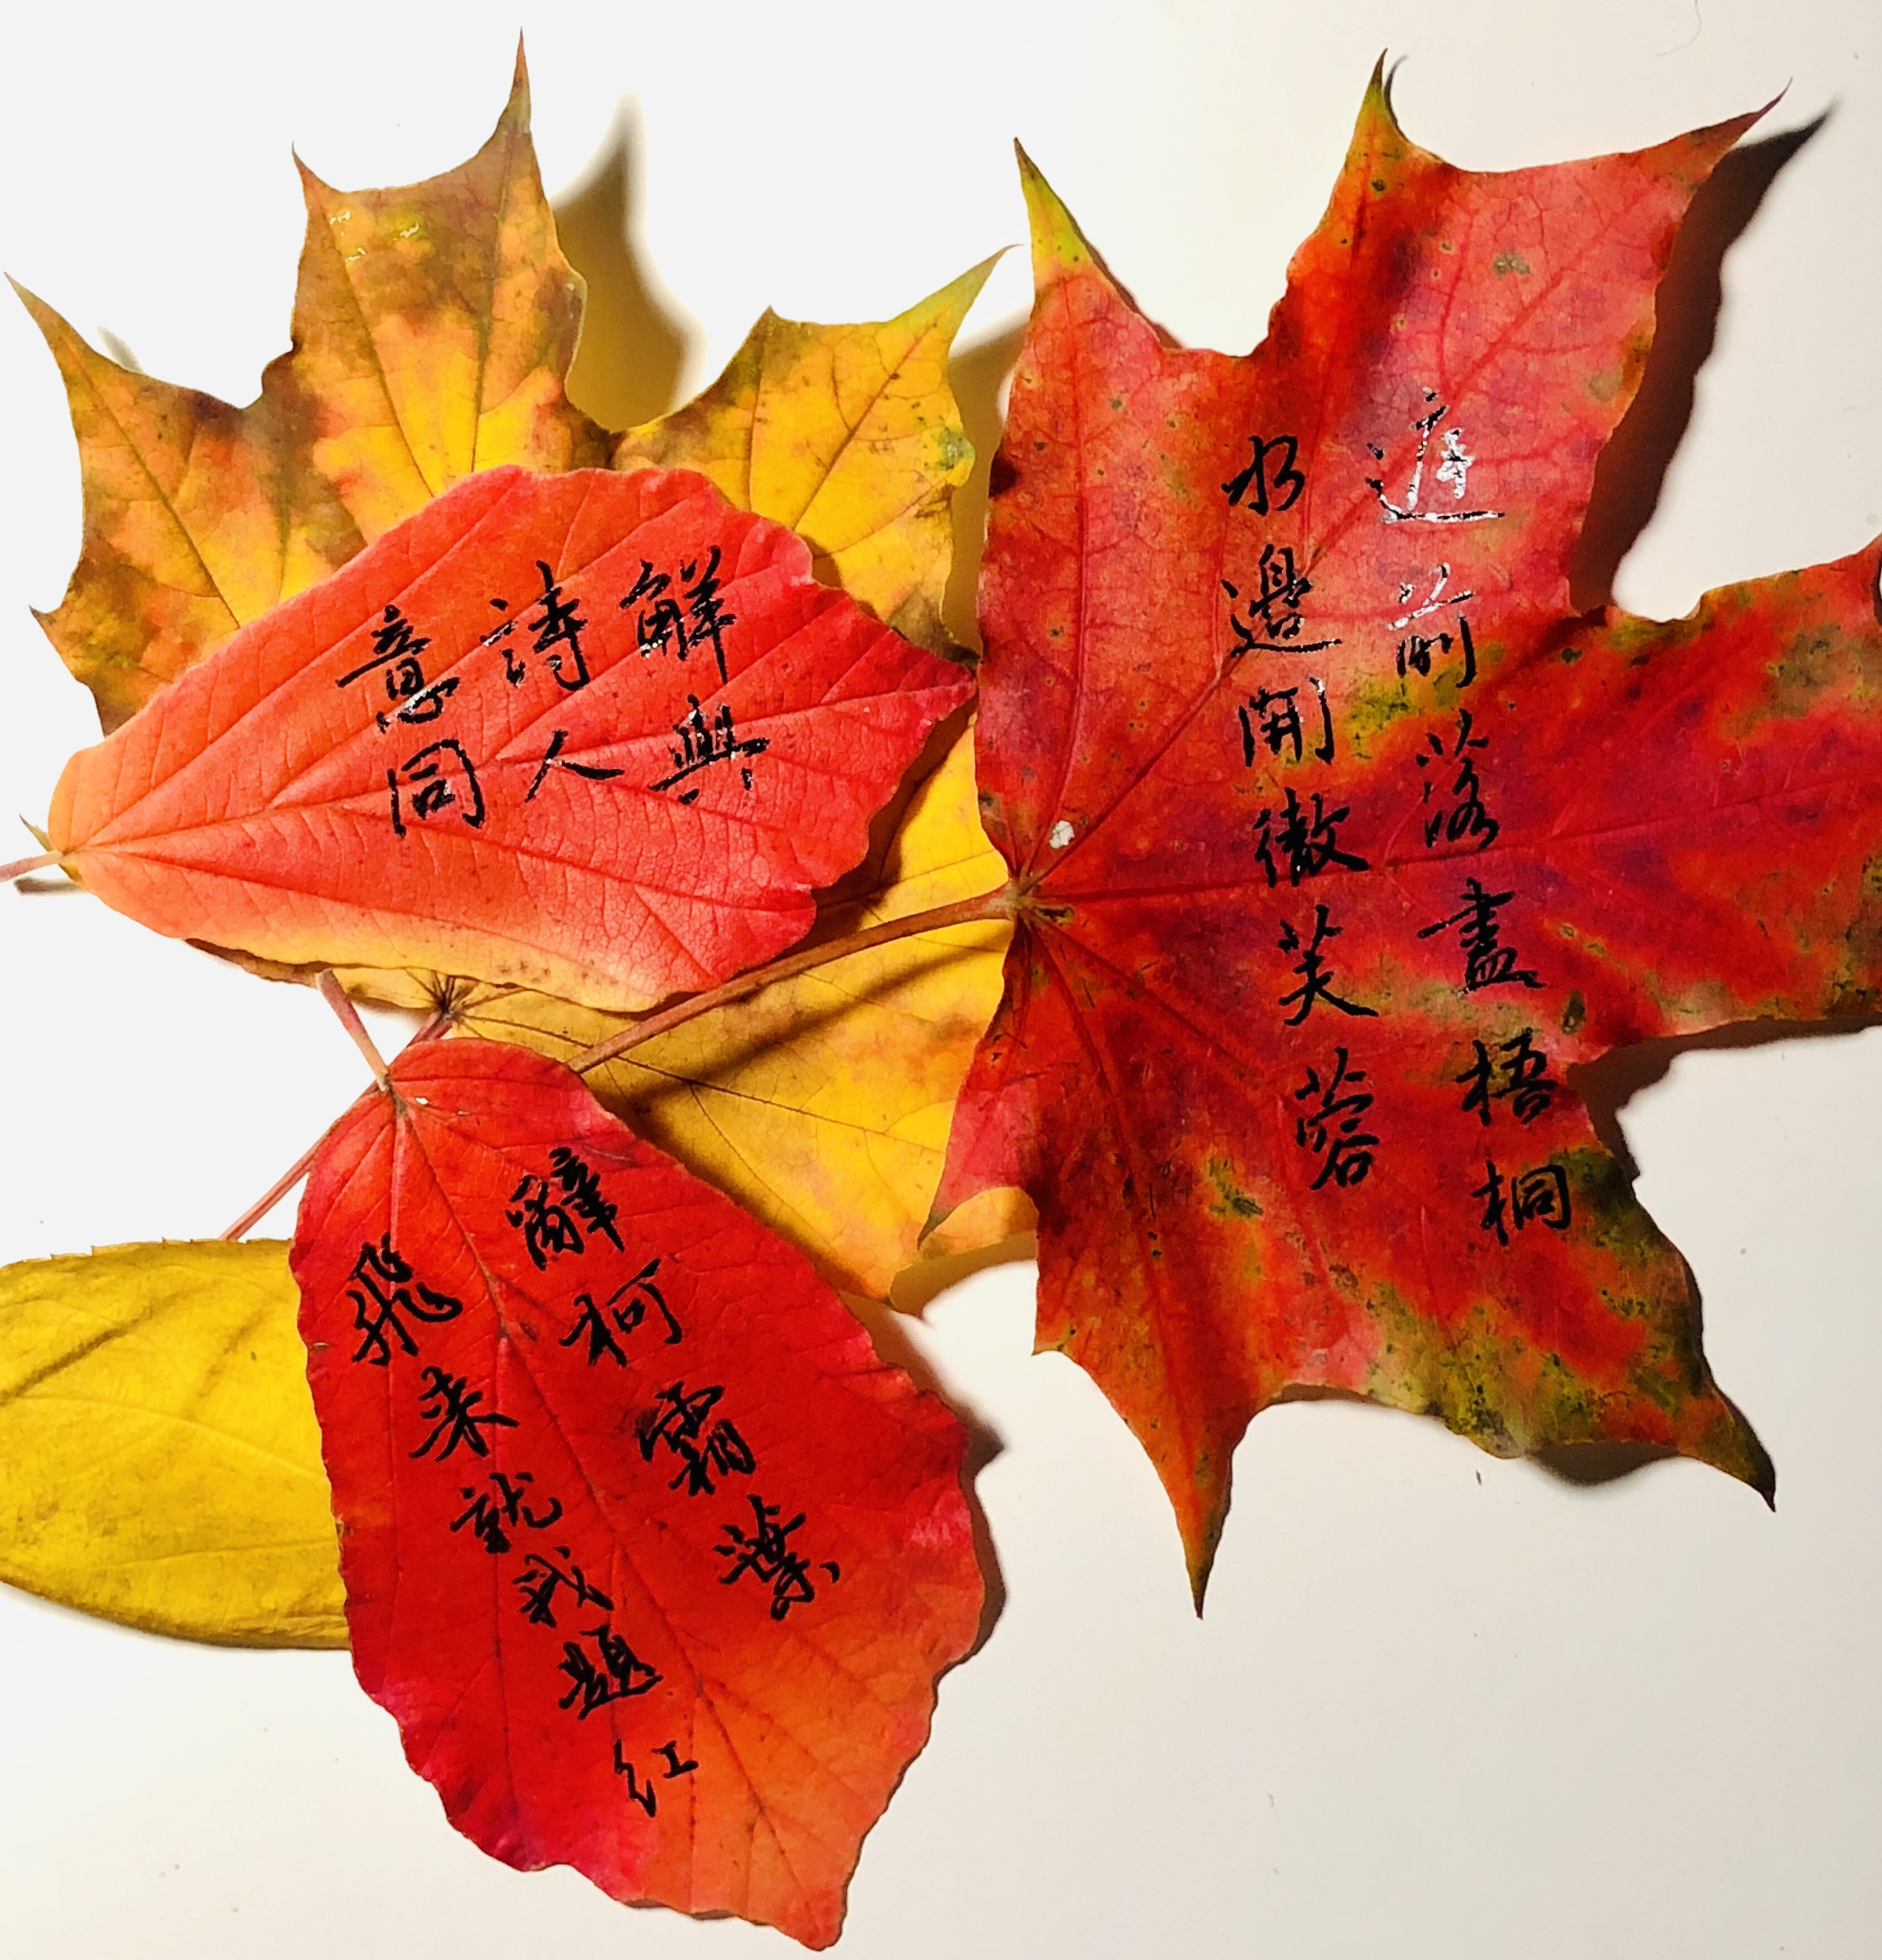 庭前落盡梧桐
水邊開徹芙蓉
觧與
詩人
意同
辭柯霜葉
飛来就我題红